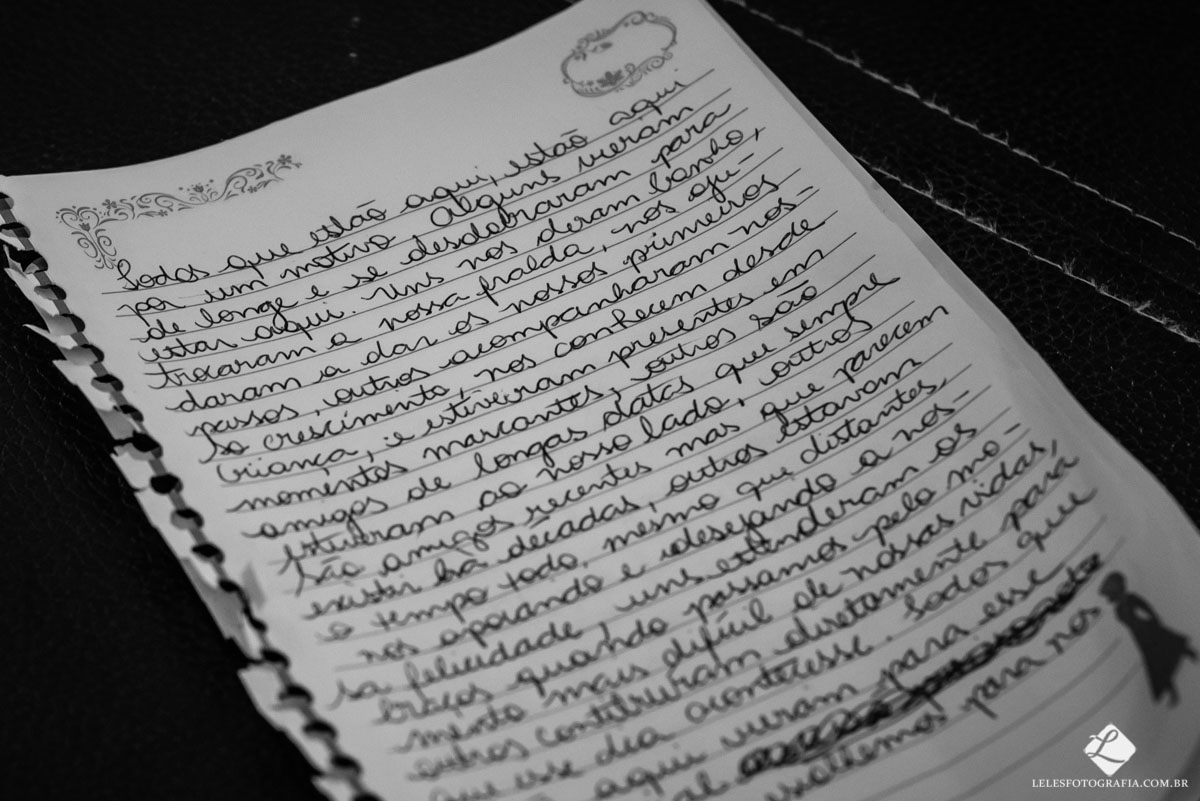 Todos que estão aqui, estão aqui
por um motivo. Alguns vieram
de longe e se desdobraram para
estar aqui. Uns nos deram banho,
trocaram a nossa fralda, nos aju-
daram a dar os nossos primeiros
passos, outros acompanharam nos-
so crescimento, nos conhecem desde
criança, e estiveram presentes em
momentos marcantes, outros são
amigos de longas datas que sempre
estiveram ao nosso lado, outros
são amigos recentes mas que parecem
existir há décadas, outros estavam
o tempo todo, mesmo que distantes,
nos apoiando e desejando a nos-
sa felicidade, uns estenderam os
braços quando passamos pelo mo-
mento mais difícil de nossas vidas,
outros contribuiram diretamente para
que esse dia acontecesse. Todos que
aqui vieram para esse
para nós
L
LELESFOTOGRAFIA.COM.BR